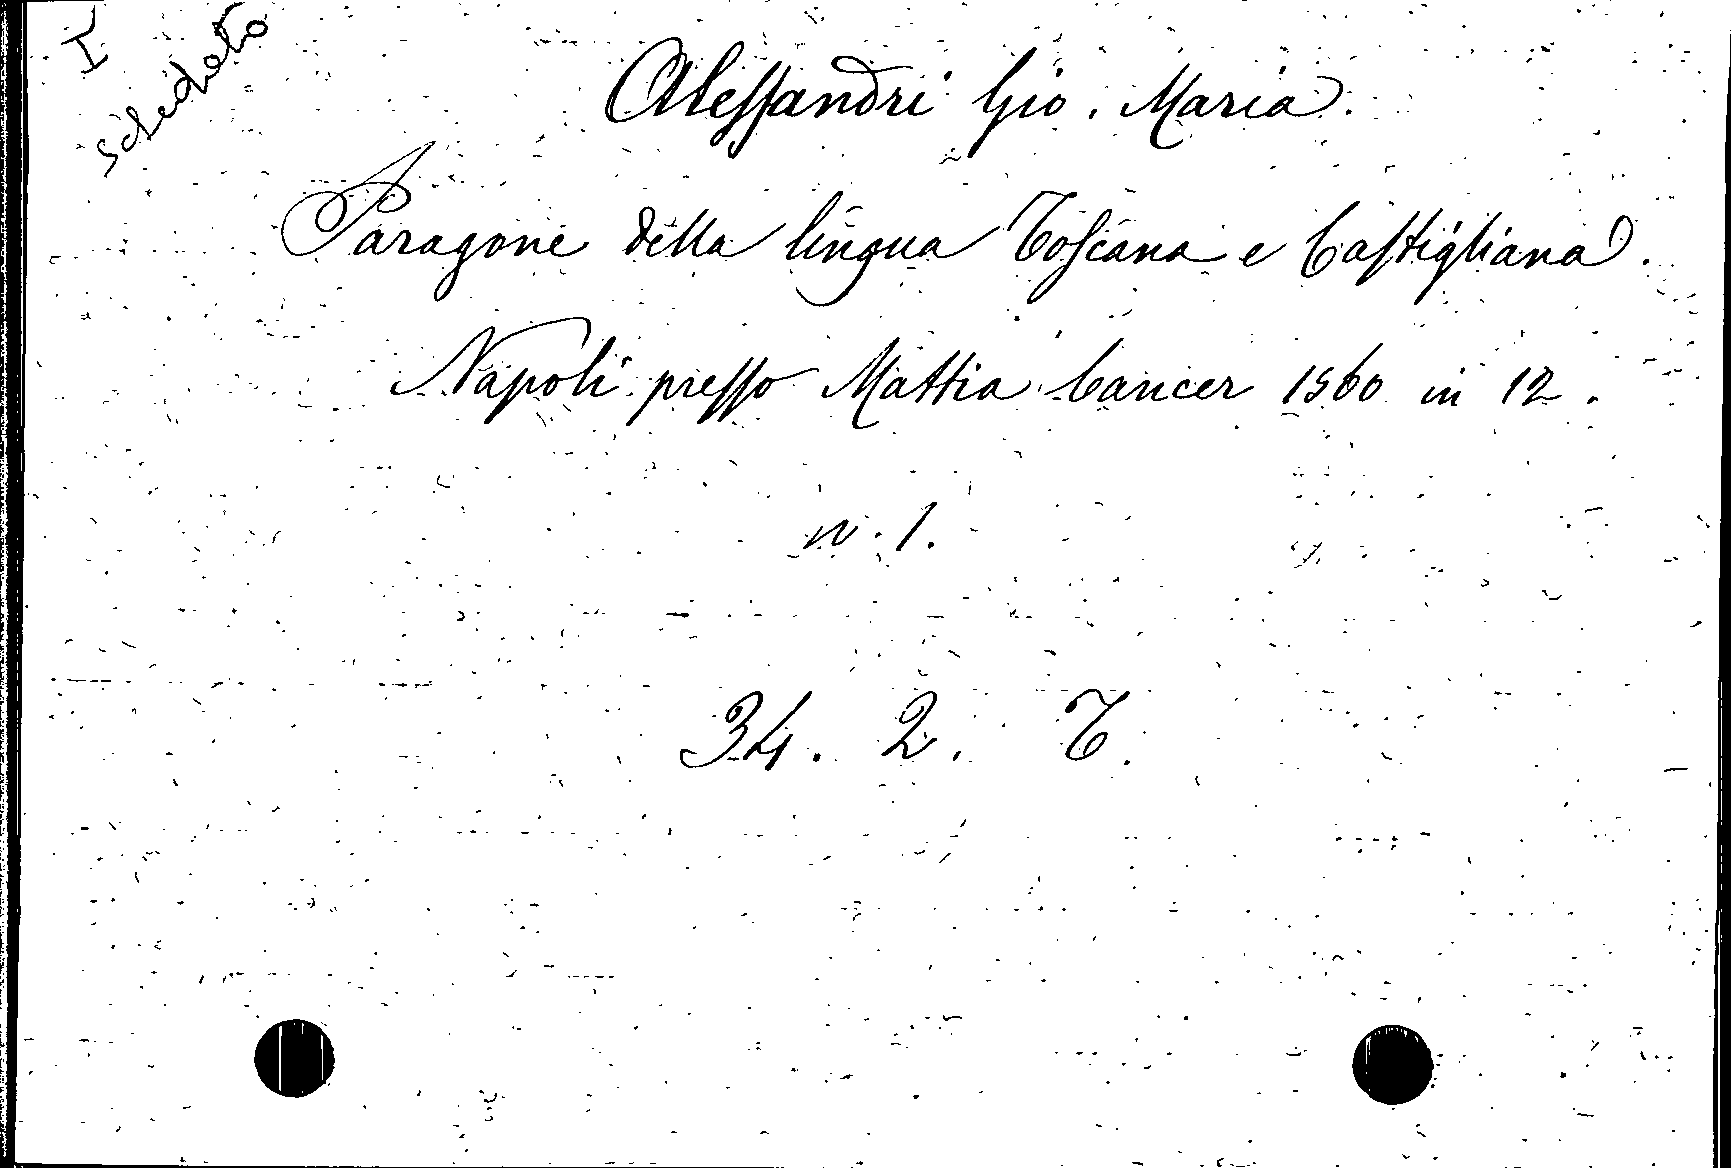 I
schedato
Alessandri Gio. Maria.
Paragone della lingua Toscana e Castigliana.
Napoli presso Mattia Cancer 1560 in 12.
n. 1.
34. 2. T.